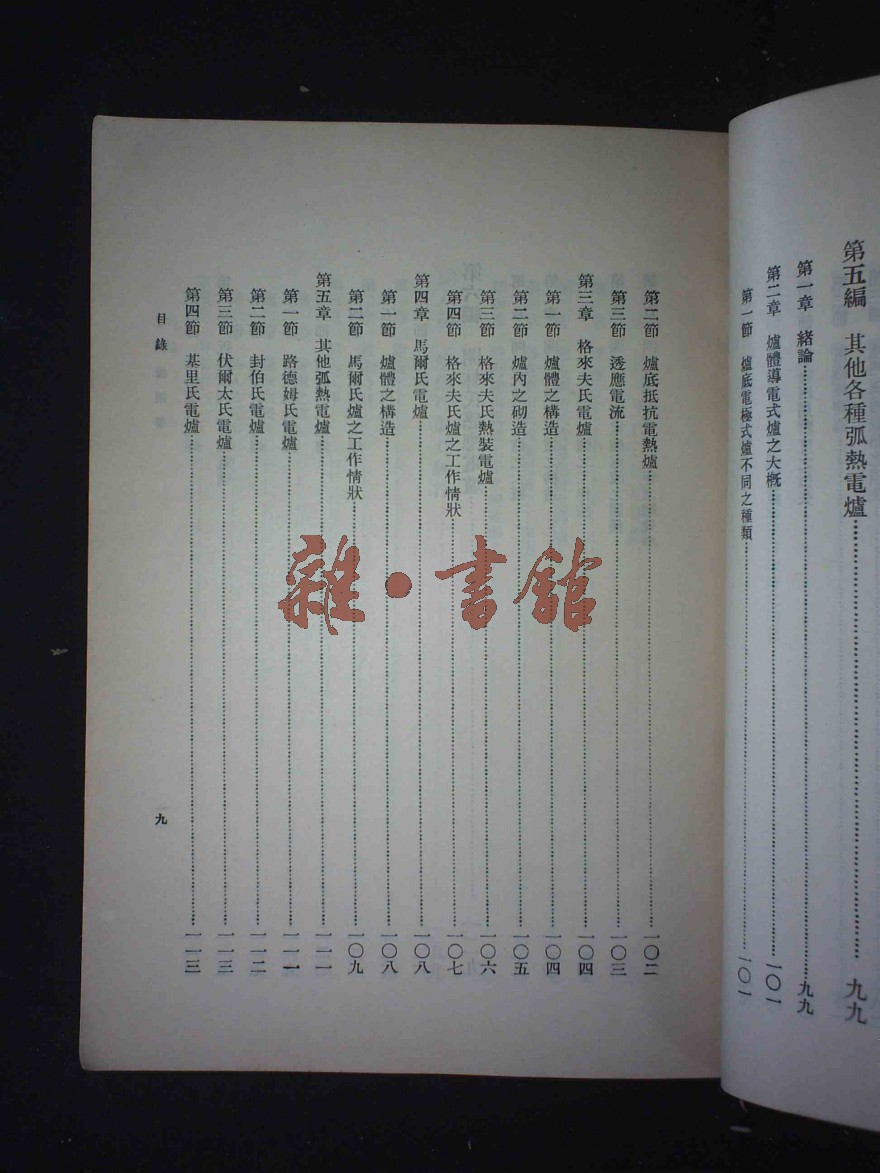 第五編　其他各種弧熱電爐……九九
第一章　緒論……九九
第二章　爐體導電式爐之大概……一〇一
第一節　爐底電極式爐不同之種類……一〇一
第二節　爐底抵抗電熱爐……一〇二
第三節　透應電流……一〇三
第三章　格來夫氏電爐……一〇四
第一節　爐體之構造……一〇四
第二節　爐內之砌造……一〇五
第三節　格來夫氏熱裝電爐……一〇六
第四節　格來夫氏爐之工作情狀……一〇七
第四章　馬爾氏電爐……一〇八
第一節　爐體之構造……一〇八
第二節　馬爾氏爐之工作情狀……一〇九
第五章　其他弧熱電爐……一一一
第一節　路德姆氏電爐……一一一
第二節　封伯氏電爐……一一二
第三節　伏爾太氏電爐……一一三
第四節　基里氏電爐……一一三
目錄
九
雜·書館